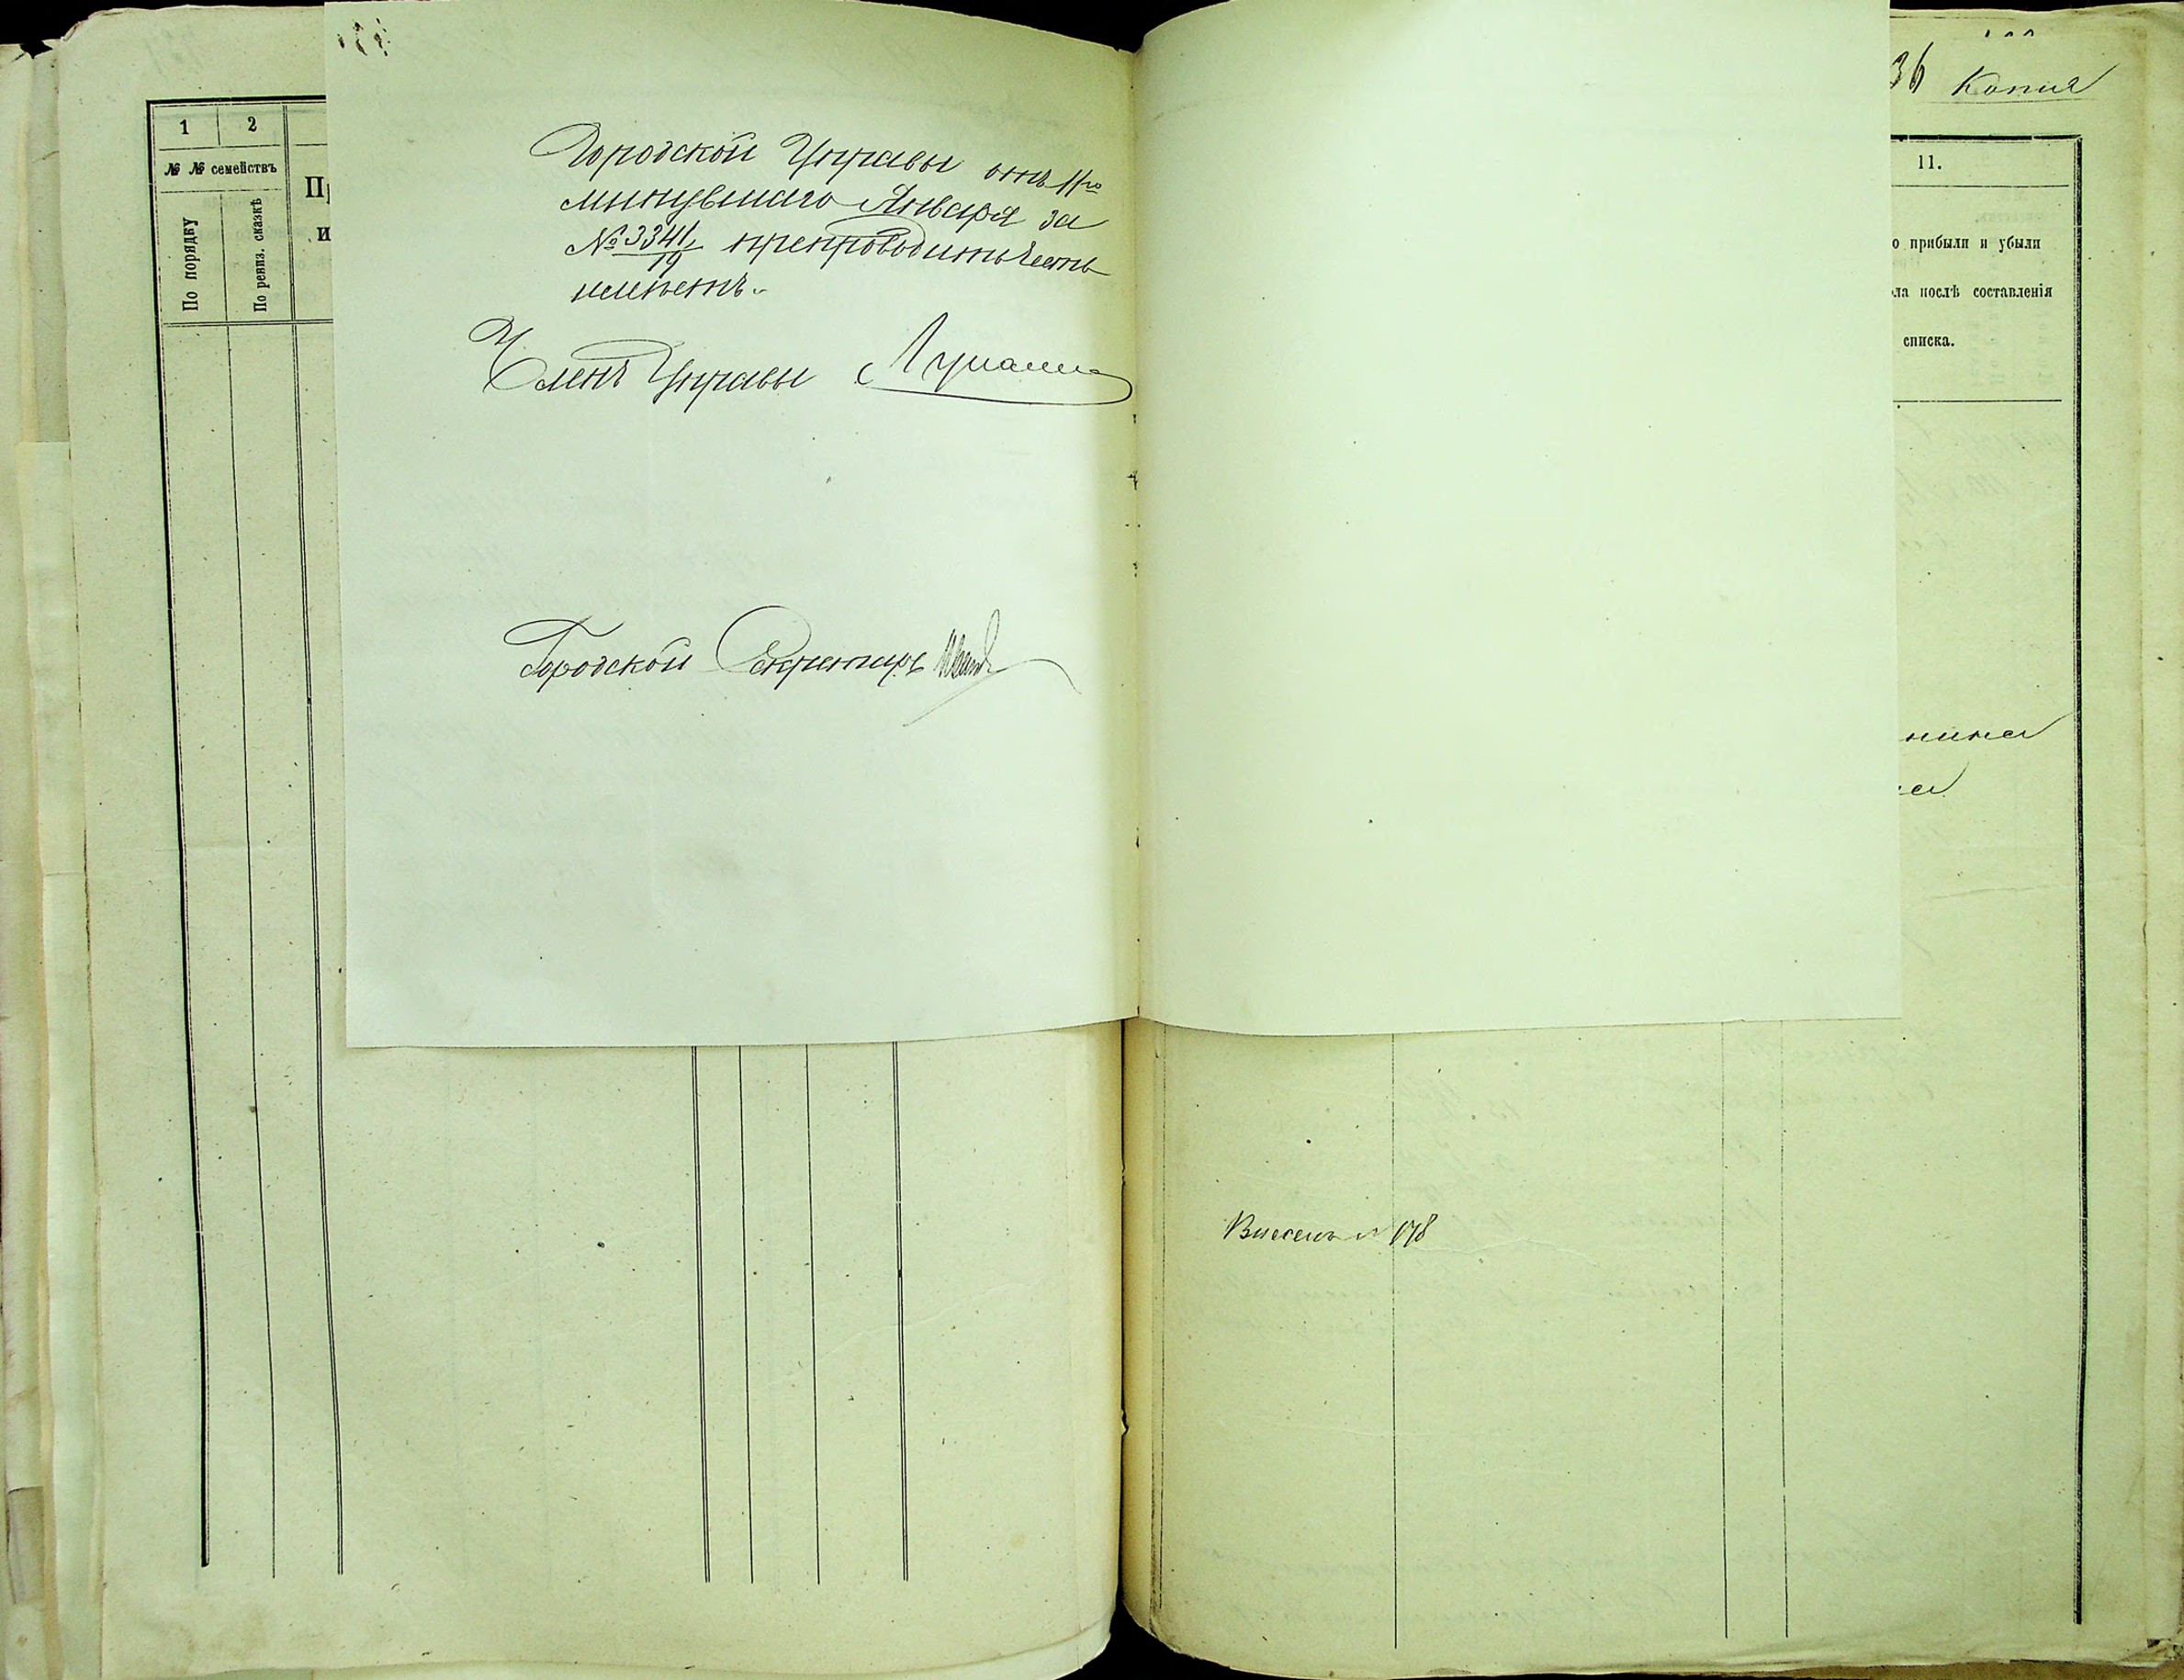 1
2
№ № семействъ
По порядку
По ревиз. сказкѣ
Пр
и
Городской Управы отъ 11го
минувшаго Января за
№ 3341/19 препроводить честь
имѣетъ.
Членъ Управы
Городской Секретарь
36 Копия
11.
о прибыли и убыли
ла послѣ составленія
списка.
нина
на
Внесенъ № 178